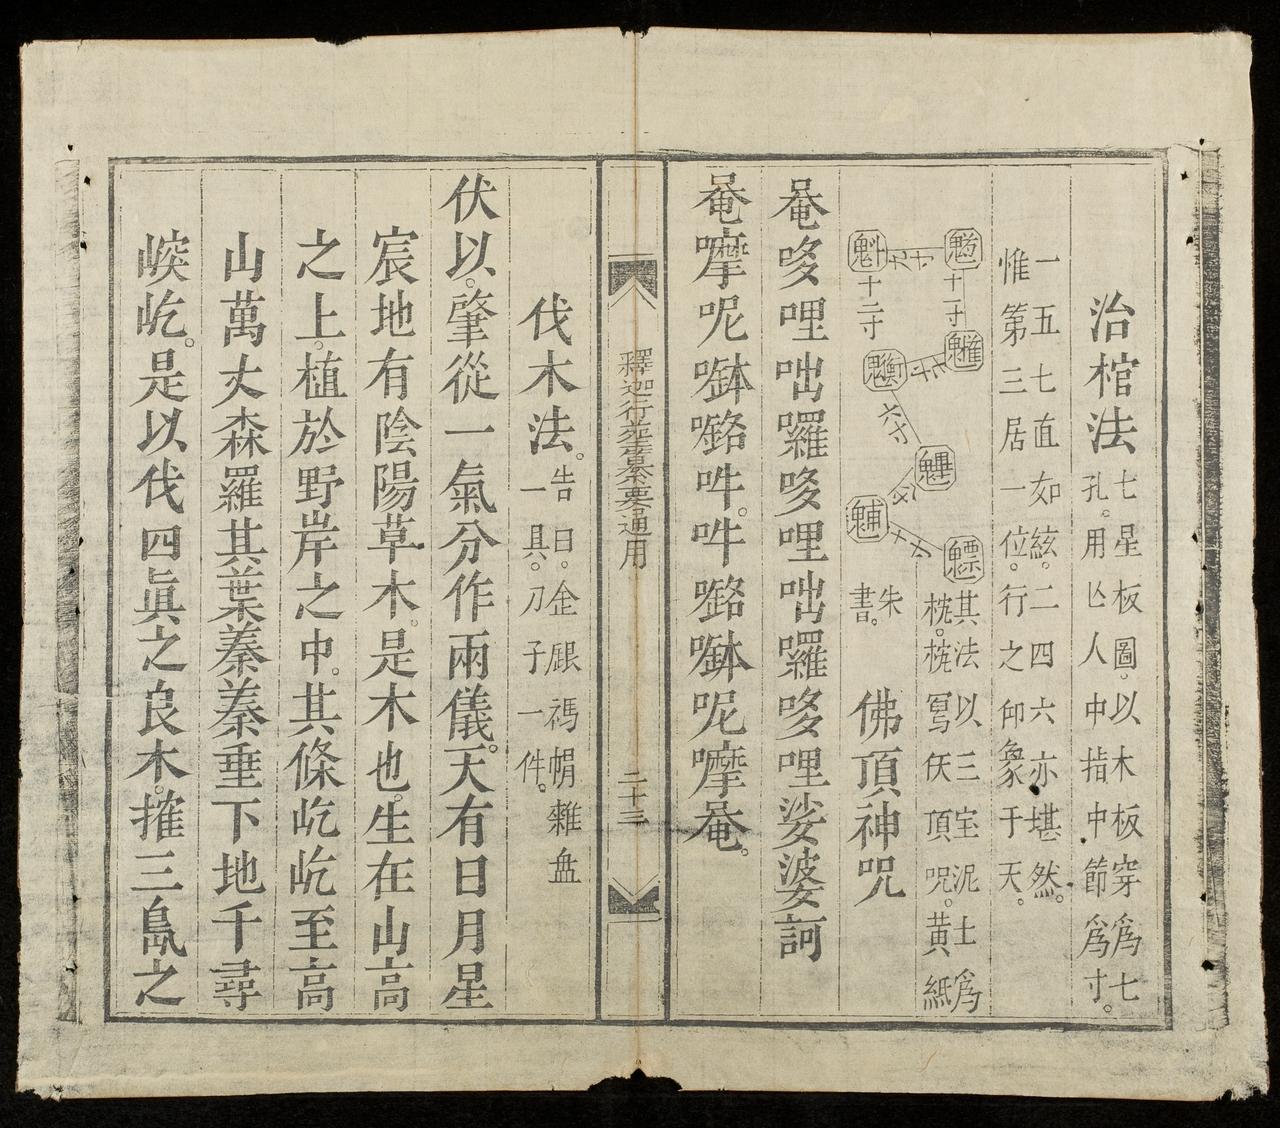 治棺法
七星板圖。以木板穿爲七
孔。用亾人中指中節爲寸。
一五七直如絃。二四六亦堪然。
惟第三居一位。行之仰象于天。
魁
十二寸
十一寸
六寸
魓
魒
其法以三宝泥土爲
枕。枕寫仸頂呪。黄紙
朱
書。
佛頂神呪
唵哆哩咄囉哆哩咄囉哆哩娑婆訶
唵嚤呢
吽。吽
呢嚤唵。
釋迦行
纂要
通用
二十三
伐木法。
告曰。金銀禡㡌雜盘
一具。刀子一件。
伏以。肇從一氣分作兩儀。天有日月星
宸地有陰陽草木。是木也。生在山高
之上。植於野岸之中。其條屹屹至高
山萬丈森羅其葉蓁蓁垂下地千尋
屹。是以伐四眞之良木。搉三島之